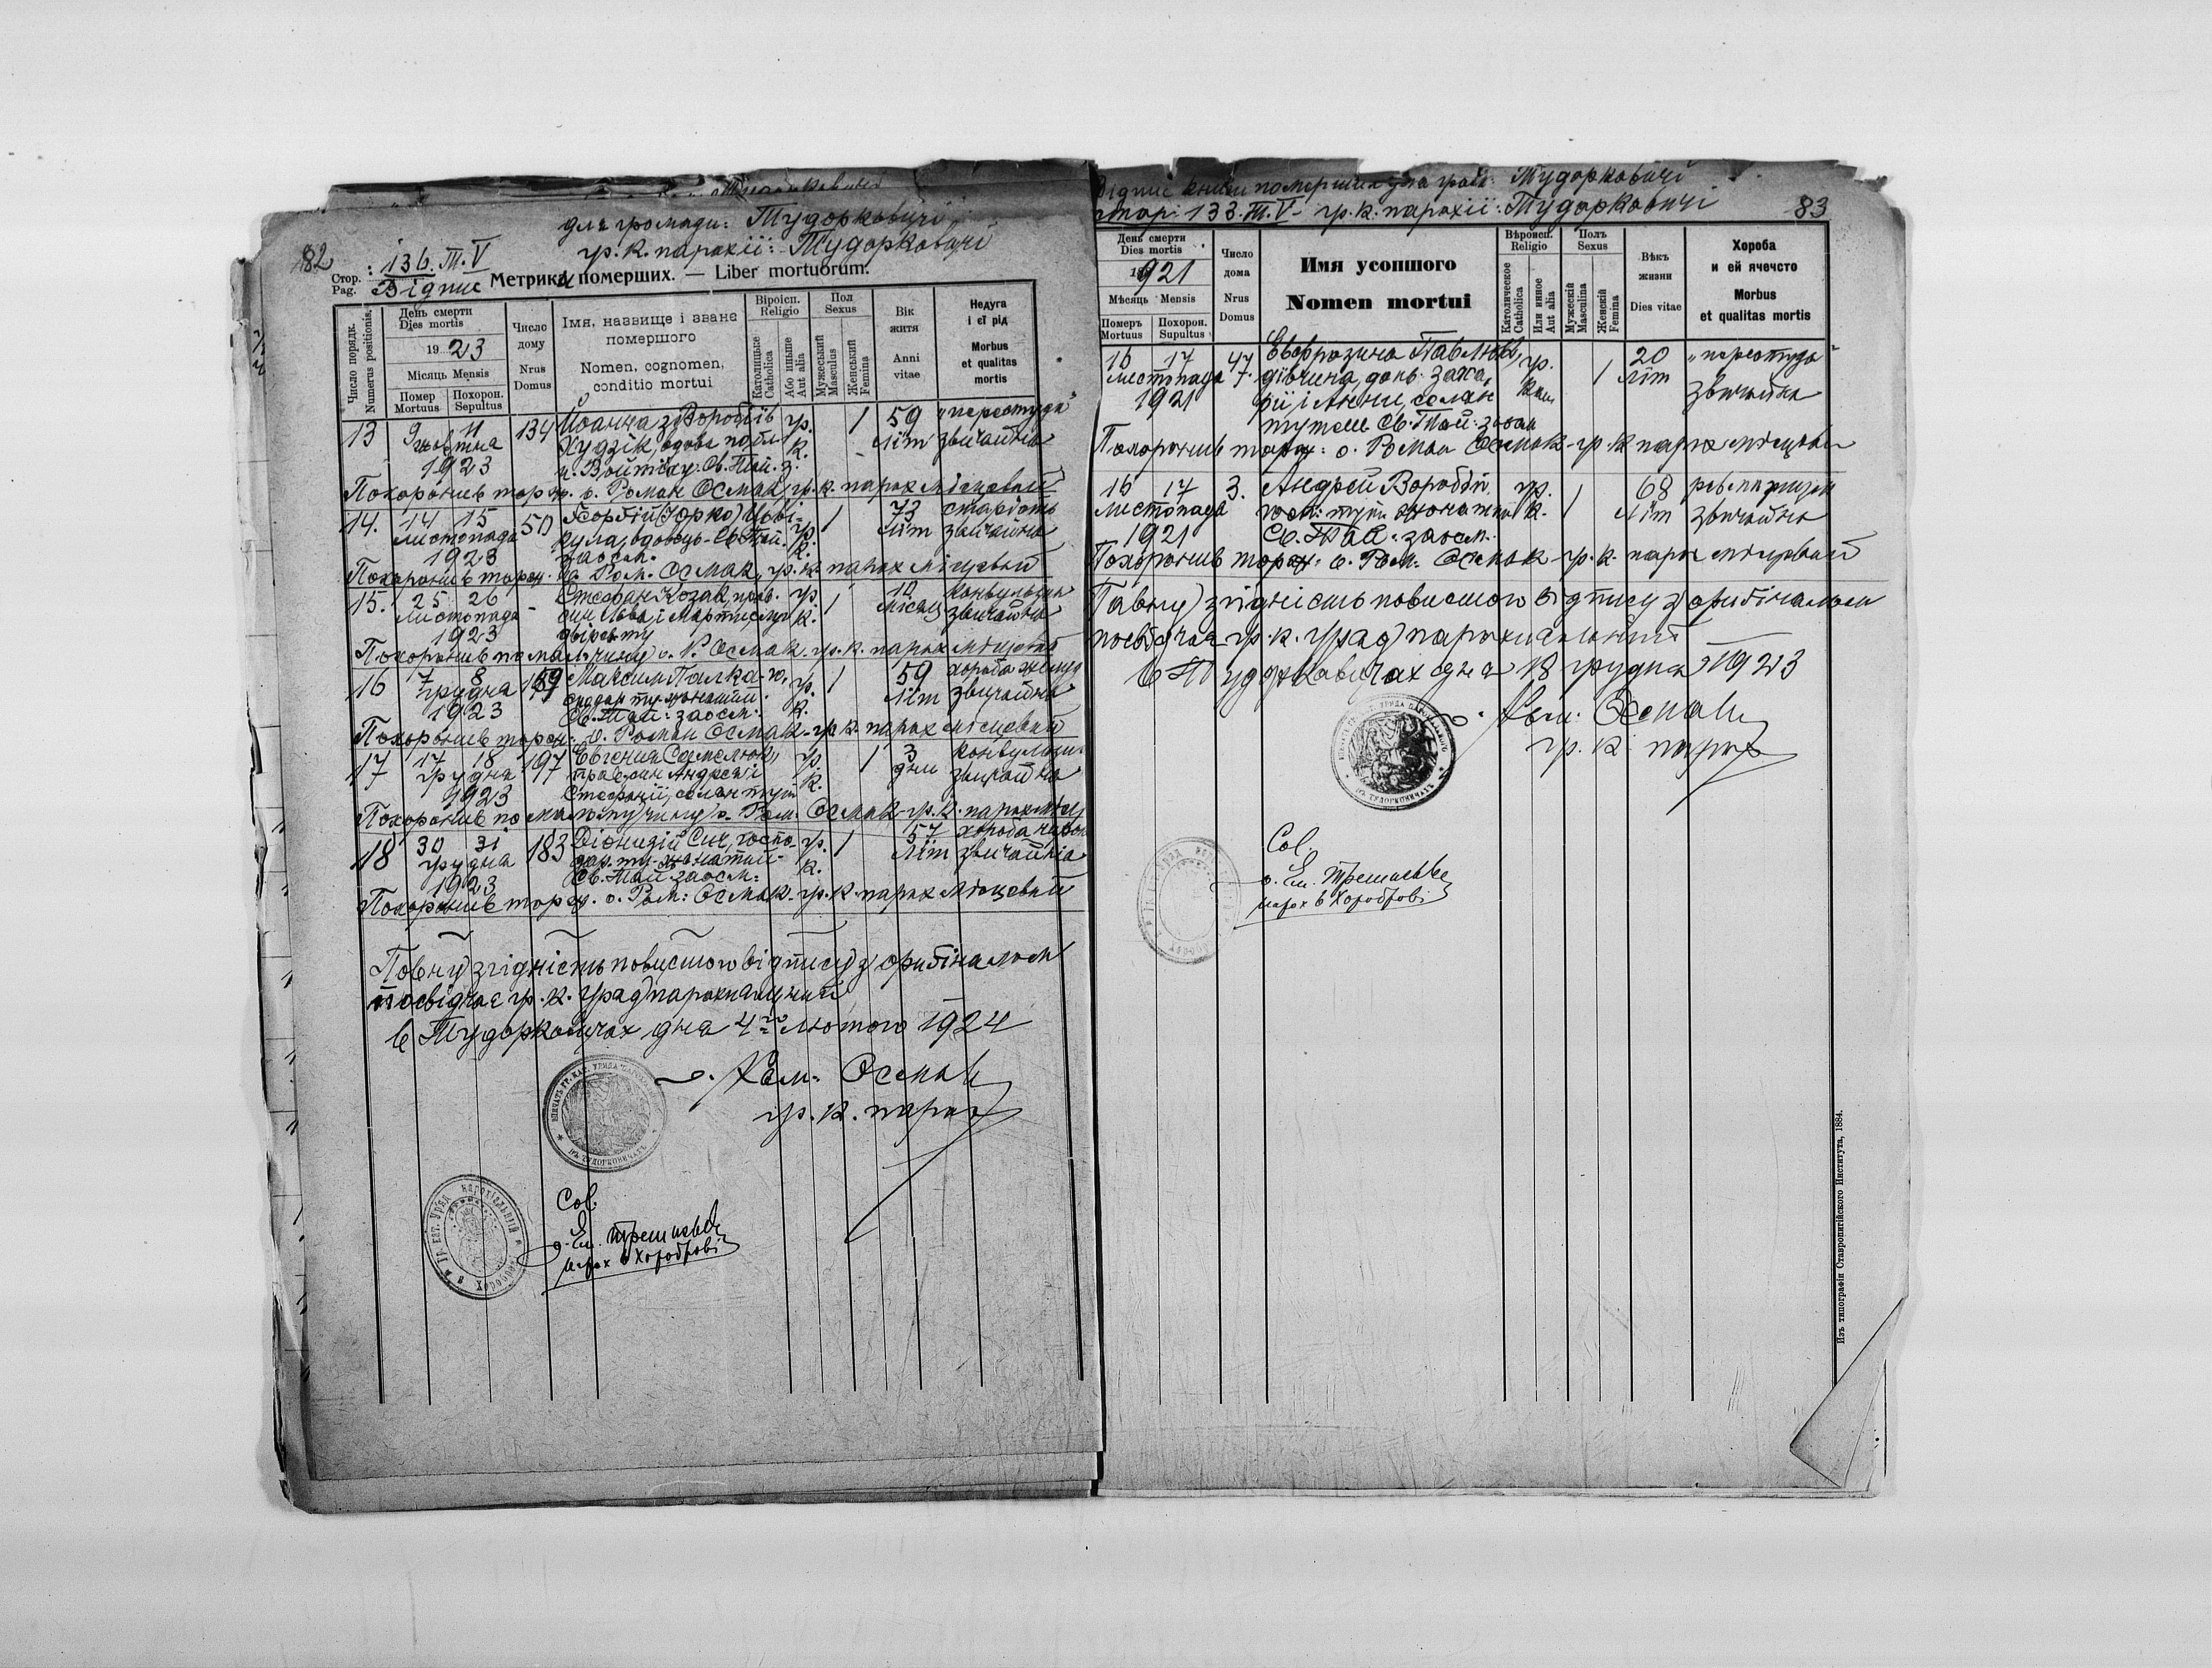 для громади: Тудорковичі
гр. к. парохії: Тудорковичі
82
Стор. Pag. : 136. Т. V
Відпис Метрика померших. — Liber mortuorum.
Число порядк. Numerus positionis.
День смерти Dies mortis
1923
Місяць Mensis
Помер Mortuus
Похорон. Sepultus
Число дому Nrus Domus
Імя, назвище і званє помершого
Nomen, cognomen, conditio mortui
Віроісп. Religio
Католицьке Catholica
Або иньше Aut alia
Пол Sexus
Мужеський Masculus
Женський Femina
Вік житя Anni vitae
Недуга і єї рід
Morbus et qualitas mortis
13 9 11 134 Йоанна з Воробіїв гр. 1 59 "перестуда"
жовтня Худзік, вдова по бл. к. літ звичайна
1923 п. Войтіху. Св. Тай. з.
Похоронив торж. о. Роман Осмак, гр. к. парох місцевий
14. 14 15 50 Георгій (Юрко) 1 73 старість
листопада вдовець - Св. Тай. гр. літ звичайна
1923 заосм. к.
Похоронив торж. о. Ром. Осмак, гр. к. парох місцевий
15. 25 26 - Стефан Козак, прав. гр. 1 10 конвульзия
листопада син Льва і к. місяц звичайна
1923
Похоронив по мал. чину о. Р. Осмак гр. к. парох місцевий
16 7 8 Максим Палка 1 59 хороба
грудня гр. літ звичайна
1923 Св. Тай: заосм: к.
Похоронив торж: о. Роман Осмак - гр. к. парох місцевий
17 17 18 197 Евгения гр. 1 3 конвульзия
грудня прав. Андрея і к. дни звичайна
1923 Стефанії, селян тут
Похоронив по малому чину о. Ром: Осмак - гр. к. парох місц
18 30 31 183 Діонизій Сич, госпо- гр. 1 57 хороба
грудня дар ту. жонатий - к. літ звичайна
1923 Св. Тай заосм:
Похоронив торж. о. Ром: Осмак - гр. к. парох місцевий
Повну згідність повисшого відпису з оригіналом
посвідчає гр. к. Уряд парохіяльний
в Тудорковичах дня 4го лютого 1924
о. Ром: Осмак
гр. к. парох
Соб.
парох в Хороброві
Відпис книги померших для гром: Тудорковичі
стор: 133. Т. V - гр. к. парохії: Тудорковичі 83
День смерти Dies mortis
1921
Мѣсяць Mensis
Померъ Mortuus
Похорон. Supultus
Число дома Nrus Domus
Имя усопшого
Nomen mortui
Вѣроисп. Religio
Католическое Catholica
Или инное Aut alia
Полъ Sexus
Мужескій Masculina
Женскій Femina
Вѣкъ жизни Dies vitae
Хороба и ей ячество
Morbus et qualitas mortis
16 17 47 Евфрозина Павлюк, гр. 1 20 "перестуда"
листопада дівчина, донь Заха- кат літ звичайна
1921 рії і Анни, селян
Св. Тай: заосм
Похоронив торж: о. Роман Осмак - гр. к. парох місцевий
16 17 3. Андрей Воробій, гр. 1 68
листопада госп: тут: жонатий к. літ звичайна
1921 Св. Тай: заосм.
Похоронив торж: о. Ром: Осмак - гр. к. парох місцевий
Повну згідність повисшого відпису з оригіналом
посвідчає гр. к. Уряд парохіяльний
в Тудорковичах дня 18 грудня 1923
о. Ром: Осмак
гр. к. парох
Соб.
парох в Хороброві
Изъ типографіи Ставропигійского Института, 1884.